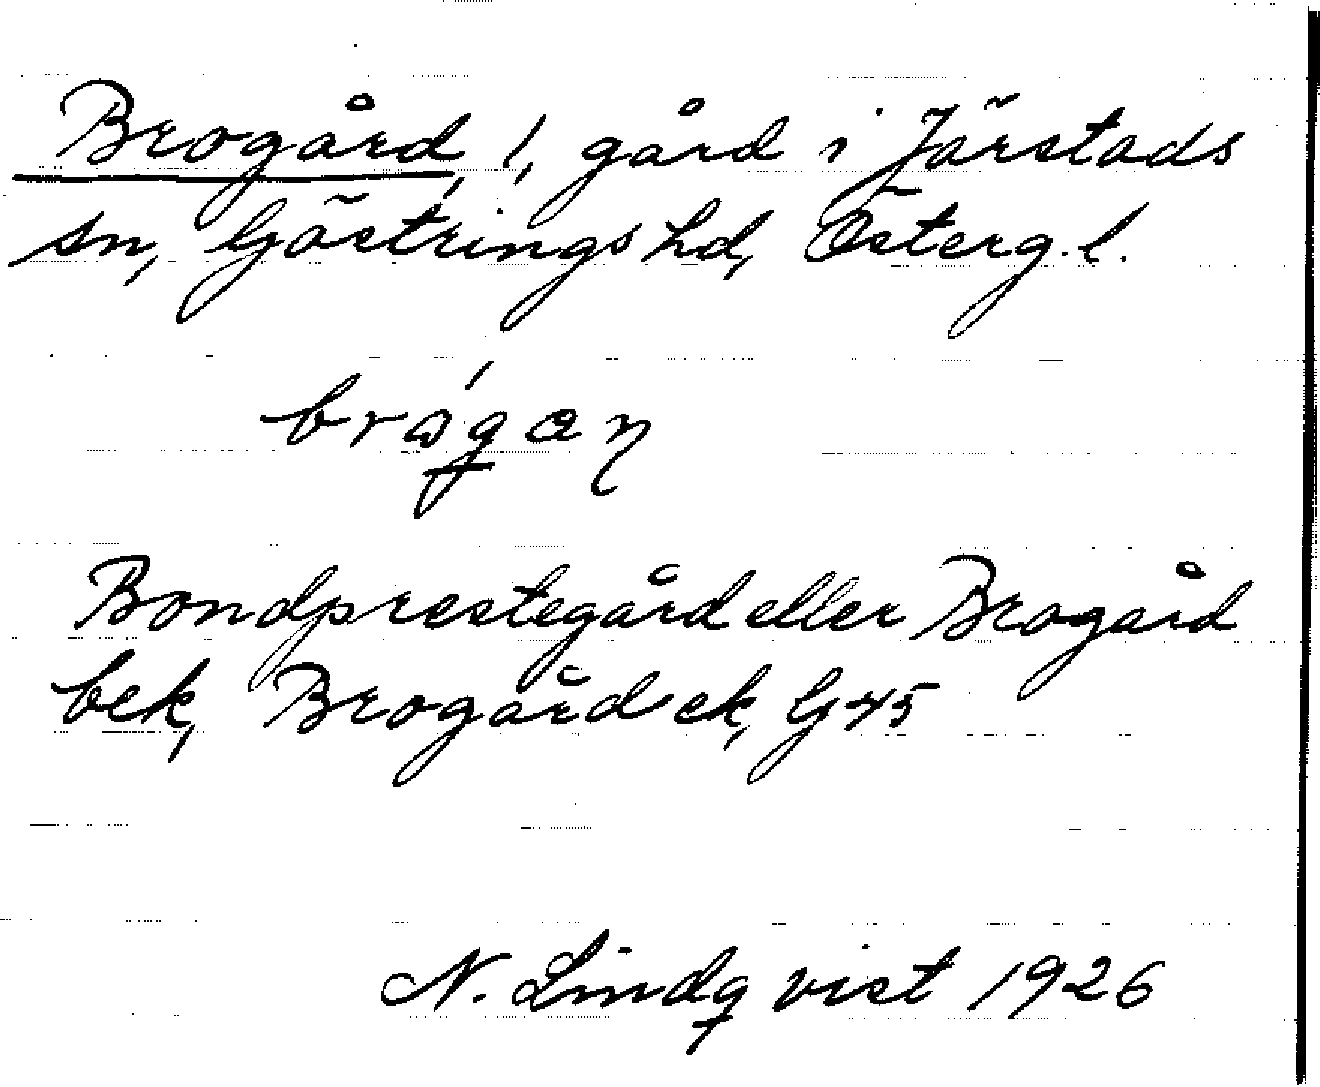 Brogård, 1, gård i Järstads
sn, Göstrings hd, Österg. l.
Bondprestegård eller Brogård
bek, Brogård ek, G 45
N. Lindqvist 1926